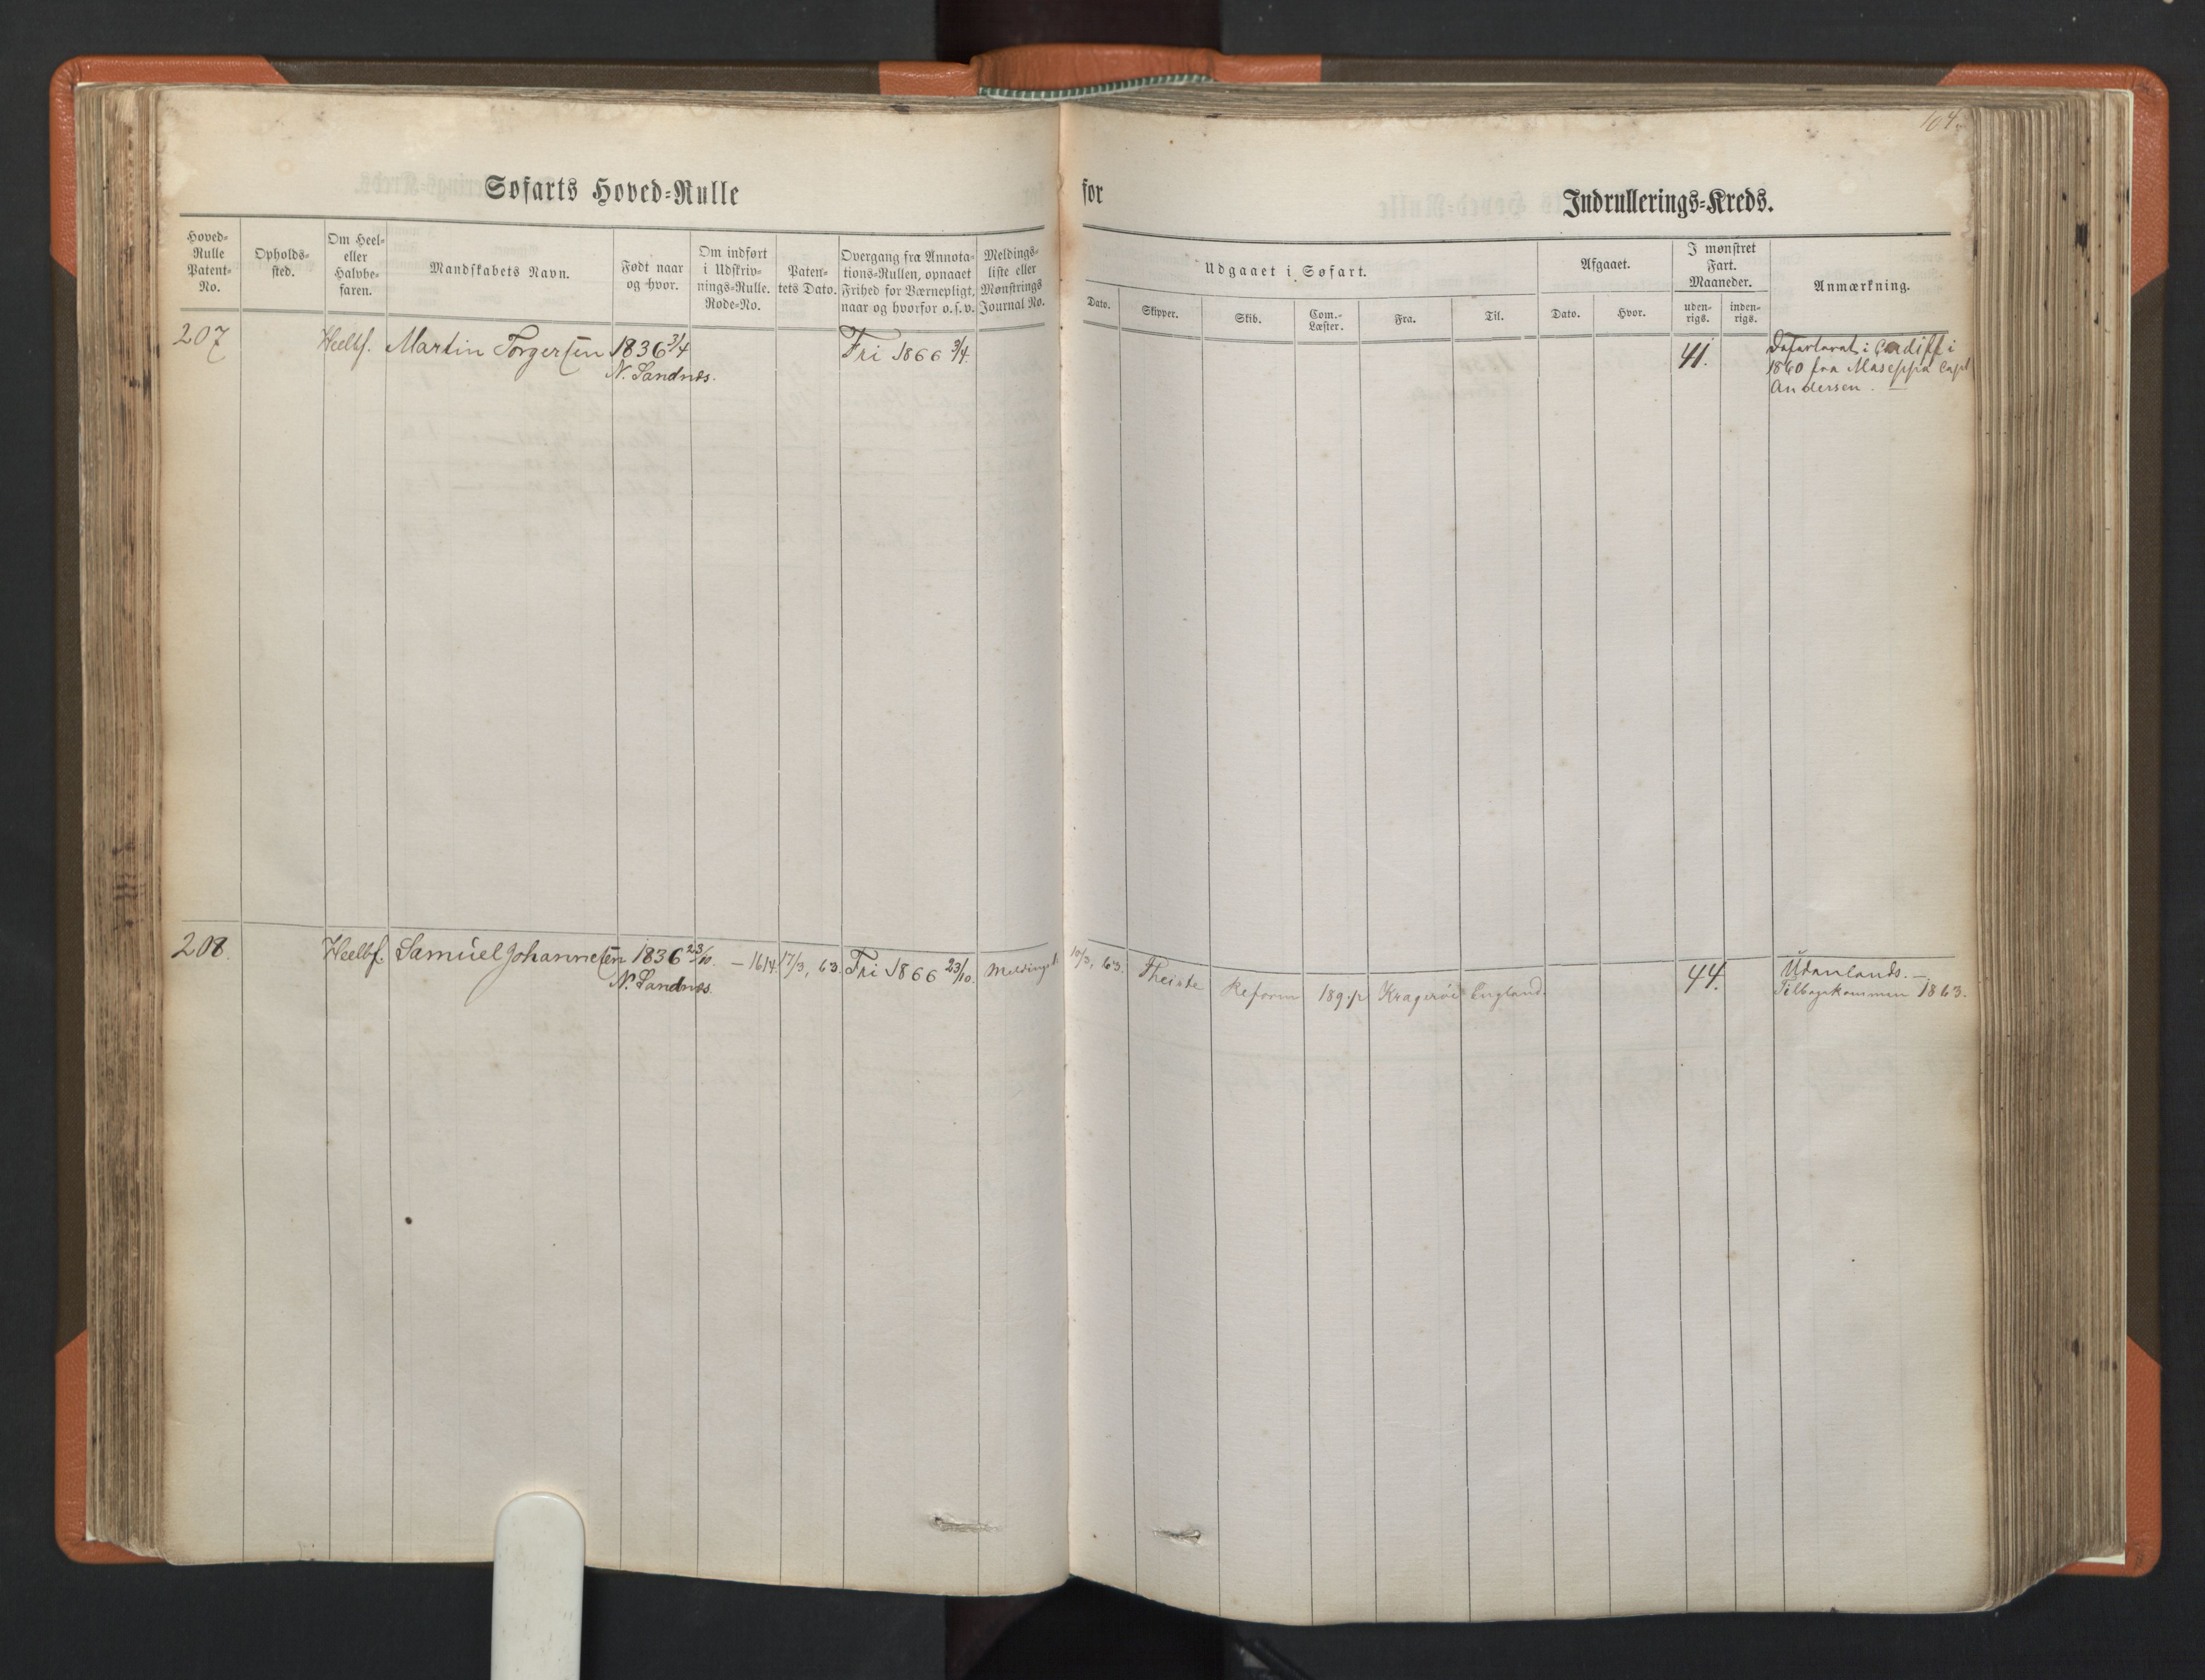 104.
Søfarts Hoved-Rulle for Indrullerings-Kreds.
Hoved-Rulle Patent-No.
Opholds-sted.
Om Heel- eller Halvbe-faren.
Mandskabets Navn.
Født naar og hvor.
Om indført i Udskriv-nings-Rulle. Rode-No.
Paten-tets Dato.
Overgang fra Annota-tions-Rullen, opnaaet Frihed for Værnepligt, naar og hvorfor o.s.v.
Meldings-liste eller Mønstrings Journal No.
Udgaaet i Søfart.
Dato.
Skipper.
Skib.
Com.-Læster.
Fra.
Til.
Afgaaet.
Dato.
Hvor.
I mønstret Fart. Maaneder.
uden-rigs.
inden-rigs.
Anmærkning.
207 Heelbf. Martin Torgersen 1836 3/4 Fri 1866 3/4. 41.
N. Sandnæs.
i Cardiff i
1860 fra Maseppa Capt
Andersen.
208. Heelbf. Samuel Johannesen 1836 23/10. — 1614. 17/3, 63. Fri 1866 23/10. 10/3, 63. Theiste Reform 189 1/2 Kragerøe England. 44. Udenlands.—
N. Sandnæs. Tilbagekommen 1863.